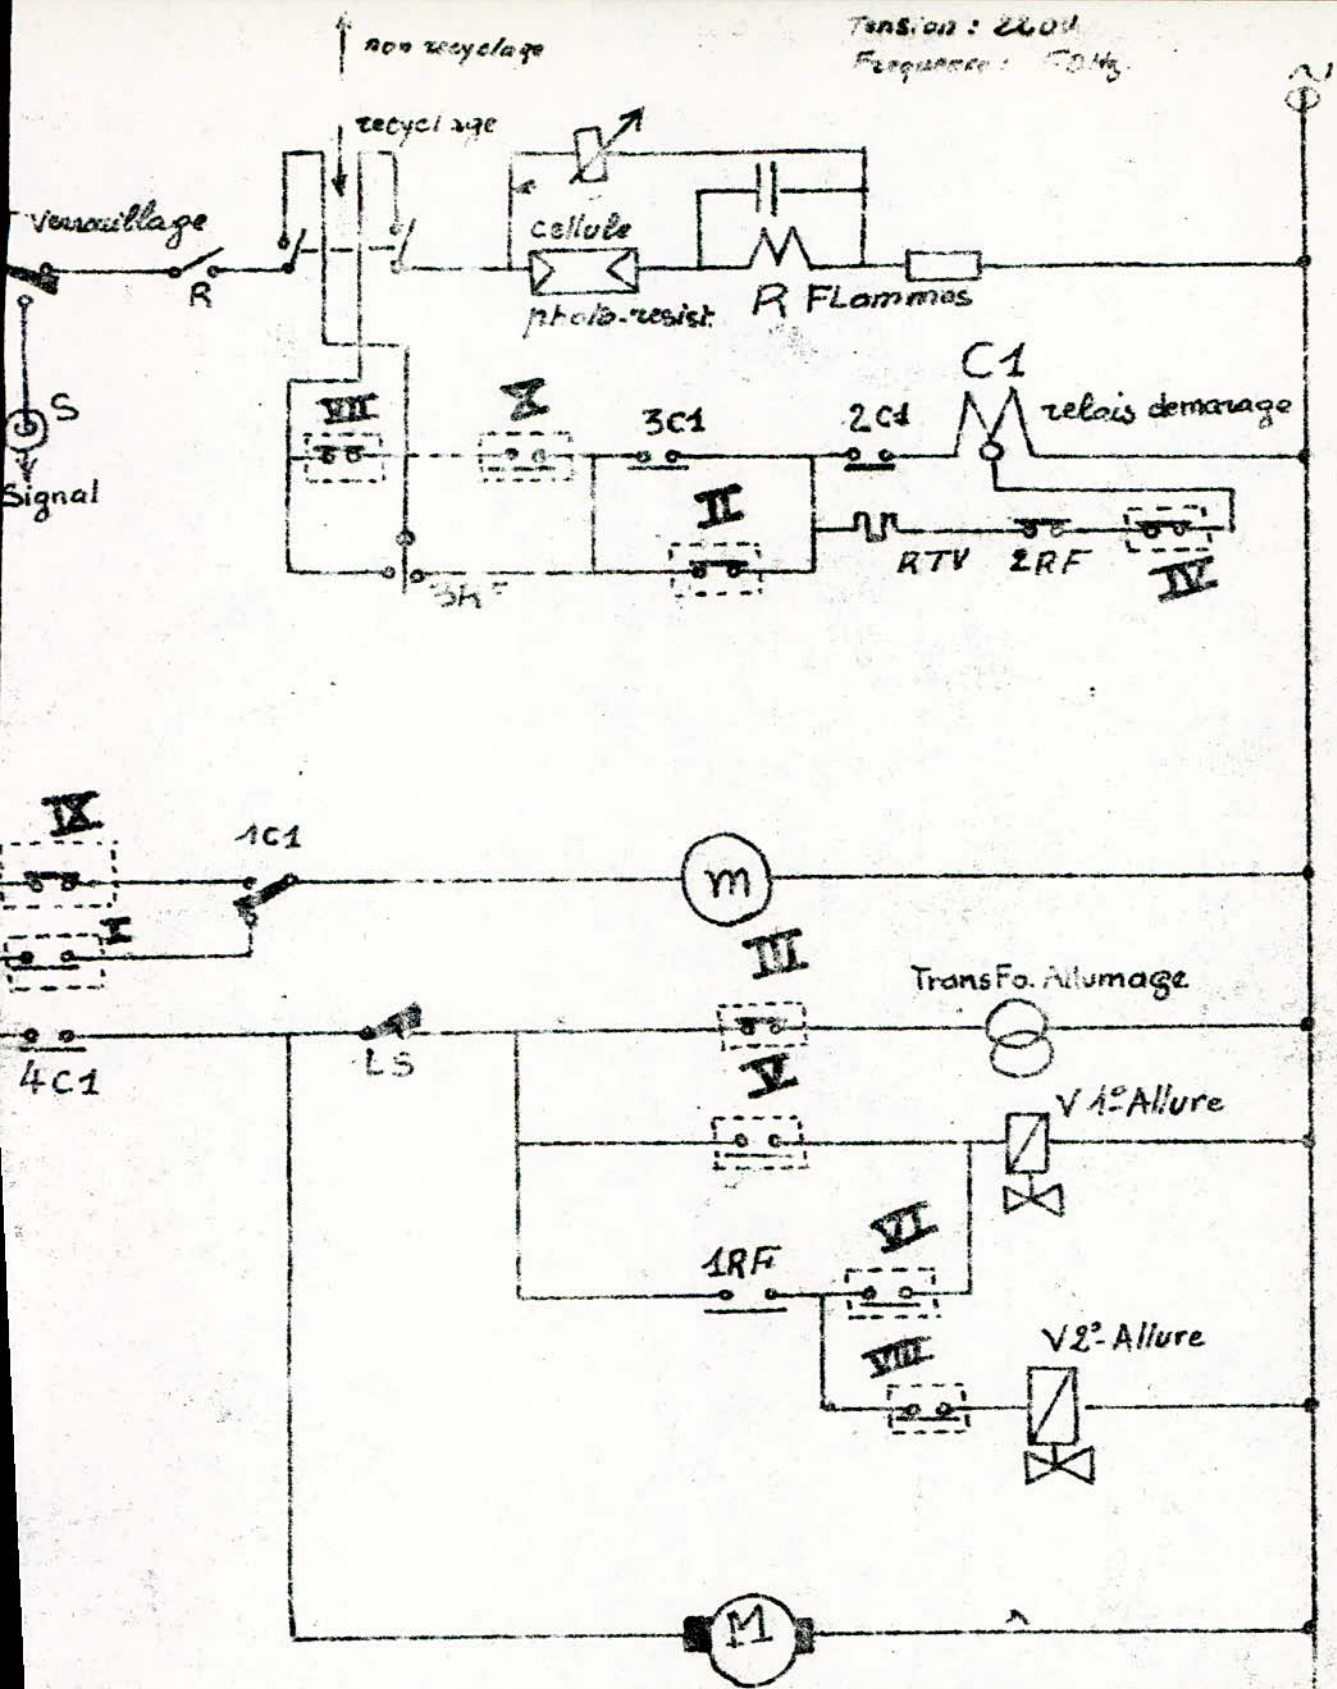 Tension : 220V
Frequence : 50Hz
non recyclage
recyclage
Verrouillage
R
cellule
photo-resist.
R FLammes
S
Signal
VII
X
3C1
2C1
C1
relais demarage
II
RTV
2RF
IV
IX
1C1
I
m
III
TransFo. Allumage
4C1
LS
V
V 1º Allure
VI
1RF
VIII
V2º Allure
M